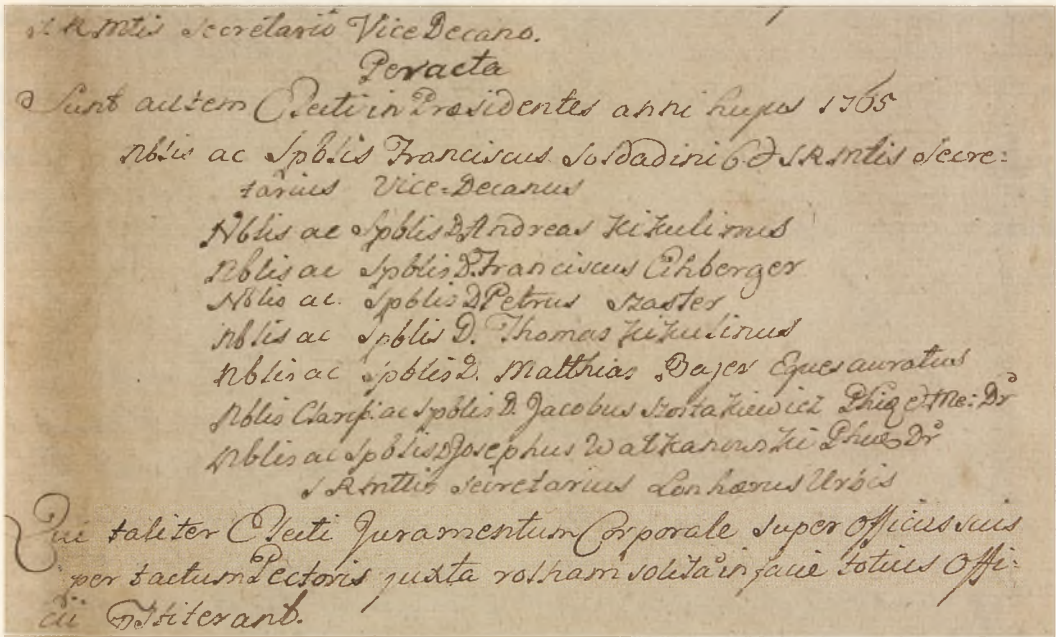 SRMtis Secretario Vice Decano.
Peracta
Sunt autem Electi in Præsidentes anni hujus 1765
Nblis ac Spblis Franciscus Soldadini C & SRMtis Secre=
tarius Vice=Decanus
Nblis ac Spblis D. Andreas Kikulinus
Nblis ac Spblis D. Franciscus Eihberger
Nblis ac. Spblis D Petrus Szaster
Nblis ac Spblis D. Thomas Kikulinus
Nblis ac Spblis D. Matthias Bajer Eques auratus
Nblis Clariss: ac Spblis D. Jacobus Szostakiewicz Phiæ & Me: Dr
Nblis ac Spblis D Josephus Watkanowski Phiæ Dr
SRMttis Secretarius Lonhærus Urbis
Qui taliter Electi Juramentum Corporale super Officiis suis
per tactum Pectoris juxta rotham solitã in facie totius Offi=
cii